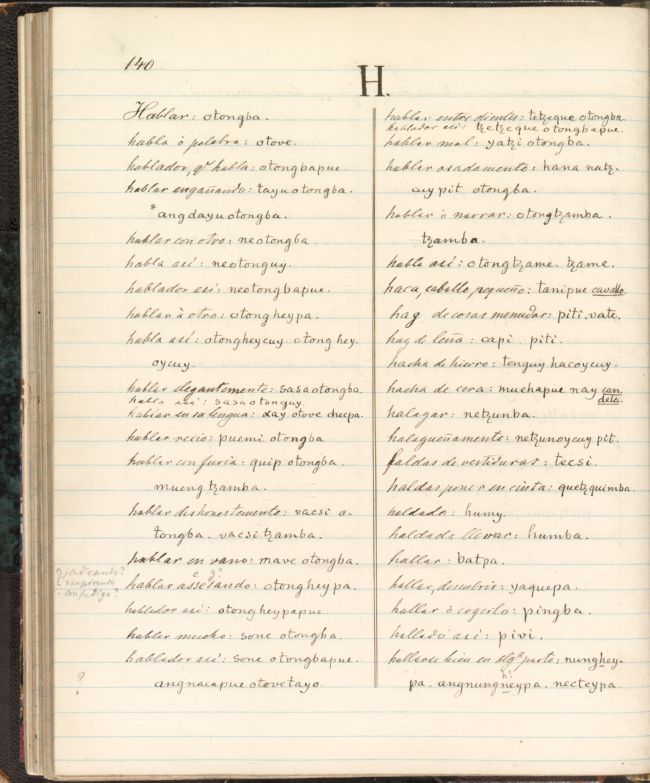 140
H.
Hablar: otongba.
habla ò palabra: otove.
hablador, q.e habla: otongbapue.
hablar engañando: tayu otongba.
*angdayu otongba.
hablar con otro: neotongba.
habla asi: neotonguy.
hablador asi: neotongbapue.
hablar à otro: otongheypa.
habla asi: otongheycuy. otong hey.
oycuy.
hablar elegantemente: sasa otongba.
habla asi: sasa otonguy.
hablar en su lengua: otove checpa.
hablar recio: puemi otongba
hablar con furia: quip otongba.
mueng tzamba.
hablar deshonestamente: vacsi o-
tongba. vacsi tzamba.
hablar en vano: mave otongba.
hablar assesando: otongheypa.
hablador asi: otongheypapue.
hablar mucho: sone otongba.
hablador asi: sone otongbapue.
? angnacapue otovetayo.
hablar entre dientes: tetzcque otongba
hablador asi: tzetzcque otongbapue.
hablar mal: yatzi otongba.
hablar osadamente: hana natz-
cuy pit otongba.
hablar ò narrar: otongtzamba.
tzamba.
habla asi: otongtzame. tzame.
haca, caballo, pequeño: tanipue cavallo.
haz de cosas menudas: piti. vate.
haz de leña: capi. piti.
hacha de hierro: tenguy hacoycuy.
hacha de cera: muchapue nay can
dela.
halagar: netzunba.
halagueñamente: netzunoycuy pit.
faldas de vestiduras: tecsi.
haldas poner en cinta: quetzquimba.
haldado: humy.
haldada llevar: humba.
hallar: batpa.
hallar, descubrir: yaquepa.
hallar ò cogerlo: pingba.
hallado asi: pivi.
hallarse bien en alg.a parte: nunghey-
pa. angnungneypa. necteypa.